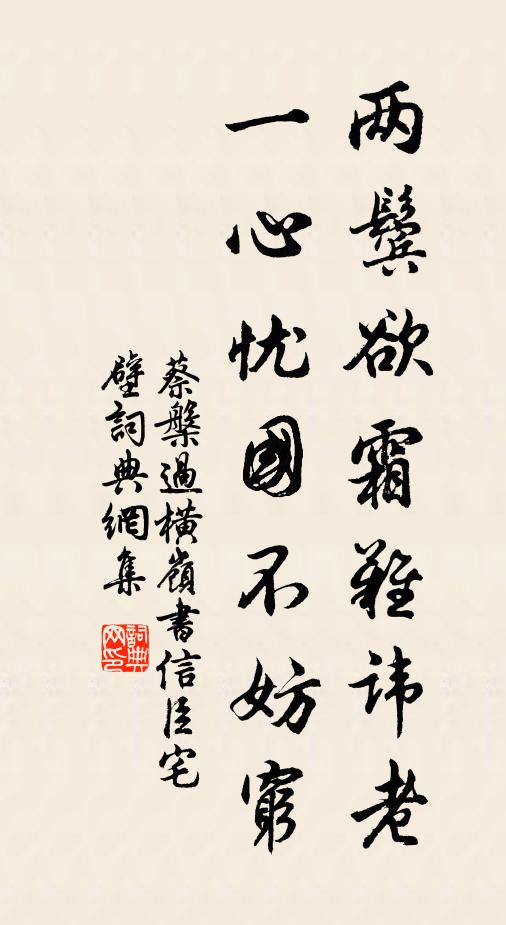 两鬓欲霜難讳老
一心忧國不妨窮
蔡槃過橫嶺書信臣宅
壁詞典網集
詞典网印